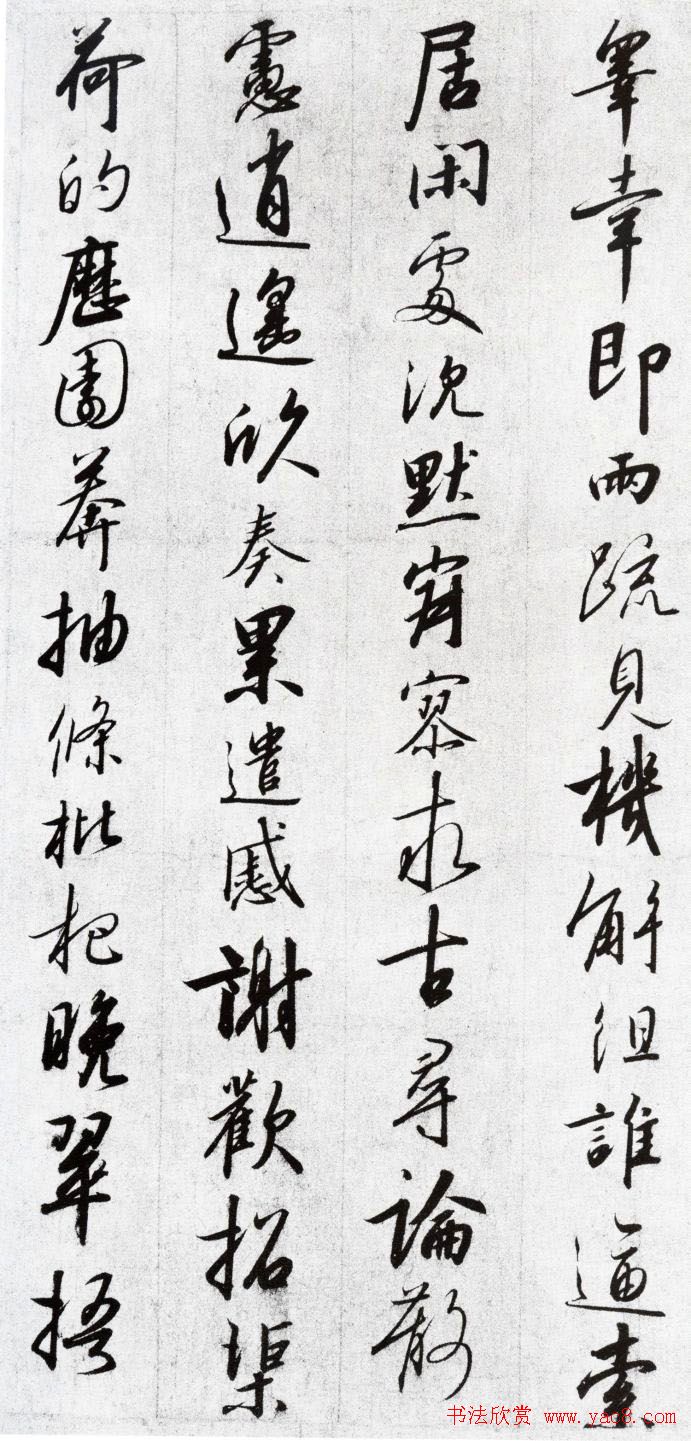 皋幸即兩疏見機解組誰逼索
居閑處沈默寂寥求古尋論散
慮逍遙欣奏累遣慼謝歡招渠
荷的歷園莽抽條枇杷晚翠梧
书法欣赏 www.yac8.com